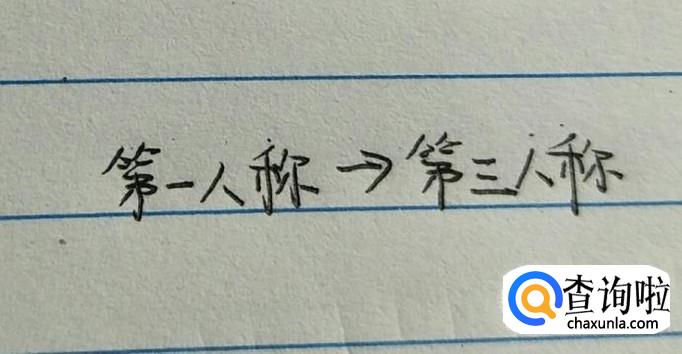 第一人称→第三人称
查询啦
chaxunla.com